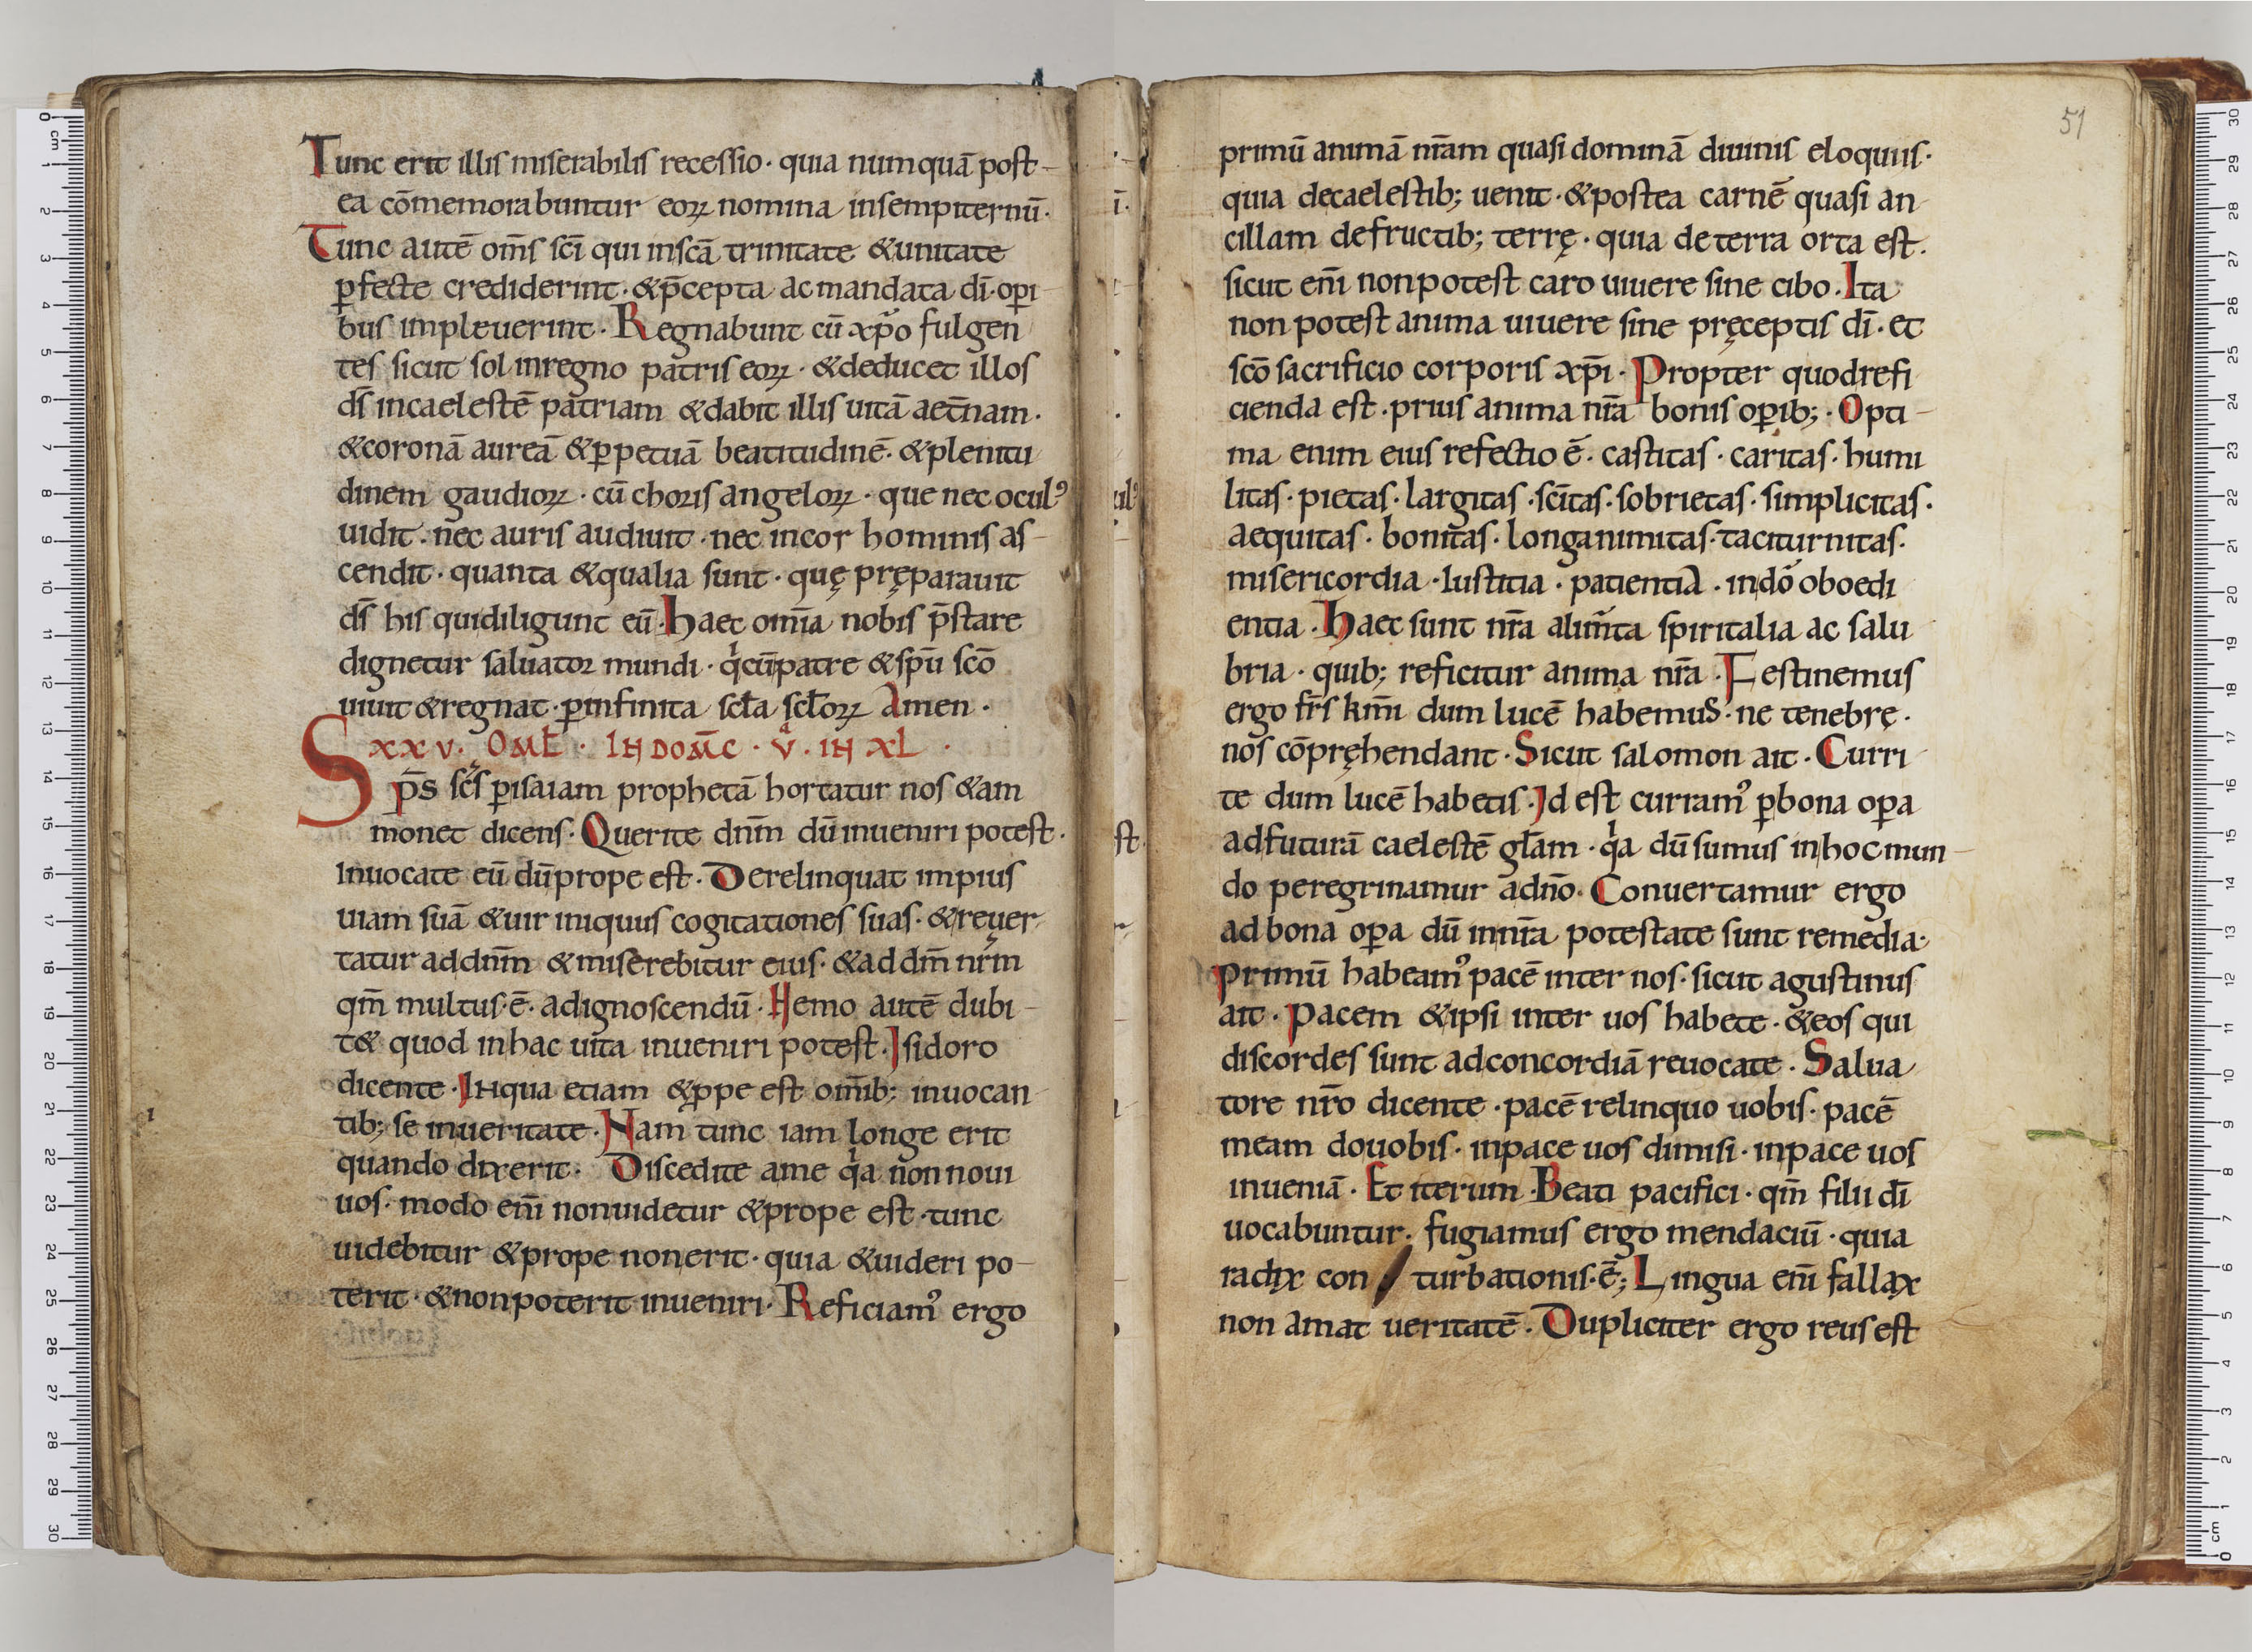 Tunc erit illis miserabilis recessio · quia numquā post-
ea cōmemorabuntur eoꝝ nomina insempiternū·
Tunc autē om̄s sc̄i qui inscā trinitate &unitate
ꝑfecte crediderint · &p̄cepta ac mandata dī · oꝑi
bus impleuerint · Regnabunt cū xp̄o fulgen
tes sicut sol inregno patris eoꝝ · &deducet illos
ds̄ incaelestē patriam &dabit illis uitā aet̄nam ·
&coronā aureā &ꝑpetuā beatitudinē · &plenitu
dinem gaudioꝝ · cū choris angeloꝝ · que nec oculꝰ
uidit · nec auris audiuit · nec incor hominis as-
cendit · quanta &qualia sunt · quę pręparauit
ds̄ his quidiligunt eū · Haec om̄ia nobis p̄stare
dignetur saluator mundi · qͥcūpatre &spū scō
uiuit &regnat · ꝑinfinita scl̄a scl̄oꝝ Amen ·
XXV · OML̄ · IN DOM̄C · V̇ · IN XL ·
Sp̄s sc̄s ꝑisaiam prophetā hortatur nos &am
monet dicens · Querite dnm̄ dū inueniri potest ·
Inuocate eū dūprope est · Derelinquat impius
uiam suā &uir iniquus cogitationes suas · &reuer
tatur addnm̄ &miserebitur eius · &ad dm̄ nr̄m
qm̄ multus · ē · adignoscendū · Nemo autē dubi-
t& quod inhac uita inueniri potest · Isidoro
dicente · Inqua etiam &ꝓpe est om̄ib; inuocan
tib; se inueritate · Nam tunc iam longe erit
quando dixerit · Discedite ame qͥa non noui
uos · modo enī nonuidetur &prope est · tunc
uidebitur &prope nonerit · quia &uideri po-
terit · &nonpoterit inueniri · Reficiamꝰ ergo
51
primū animā nr̄am quasi dominā diuinis eloquiis ·
quia decaelestib; uenit · &postea carnē quasi an
cillam defructib; terrę · quia deterra orta est ·
sicut enī nonpotest caro uiuere sine cibo · Ita
non potest anima uiuere sine pręceptis dī · et
scō sacrificio corporis xp̄i · Propter quodrefi
cienda est · prius anima nr̄a bonis oꝑib; · Opti-
ma enim eius refectio ē · castitas · caritas · humi
litas · pietas · largitas · sc̄itas · sobrietas · simplicitas ·
aequitas · bonitas · longanimitas · taciturnitas ·
misericordia · Iustitia · patientia · indō oboedi
entia · Haec sunt nr̄a alim̄ta spiritalia ac salu
bria · quib; reficitur anima nr̄a · Festinemus
ergo fr̄s km̄i dum lucē habemus · ne tenebrę ·
nos cōpręhendant · Sicut salomon ait · Curri
te dum lucē habetis · Id est curramꝰ ꝑbona oꝑa
adfuturā caelestē gl̄am · qͥa dū sumus inhocmun-
do peregrinamur adnō · Conuertamur ergo
ad bona oꝑa dū innr̄a potestate sunt remedia ·
Primū habeamꝰ pacē inter nos · sicut agustinus
ait · Pacem &ipsi inter uos habete · &eos qui
discordes sunt adconcordiā reuocate · Salua
tore nr̄o dicente · pacē relinquo uobis · pacē
meam douobis · inpace uos dimisi · inpace uos
inueniā · Et iterum · Beati pacifici · qm̄ filii dī
uocabuntur · fugiamus ergo mendaciū · quia
radix con turbationis · ē; Lingua enī fallax
non amat ueritatē · Dupliciter ergo reus est